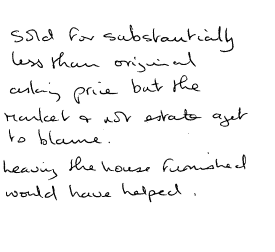 Sold for substantially
less than original
asking price but the
market & not estate aget
to blame.
Leaving the house furnished
would have helped.